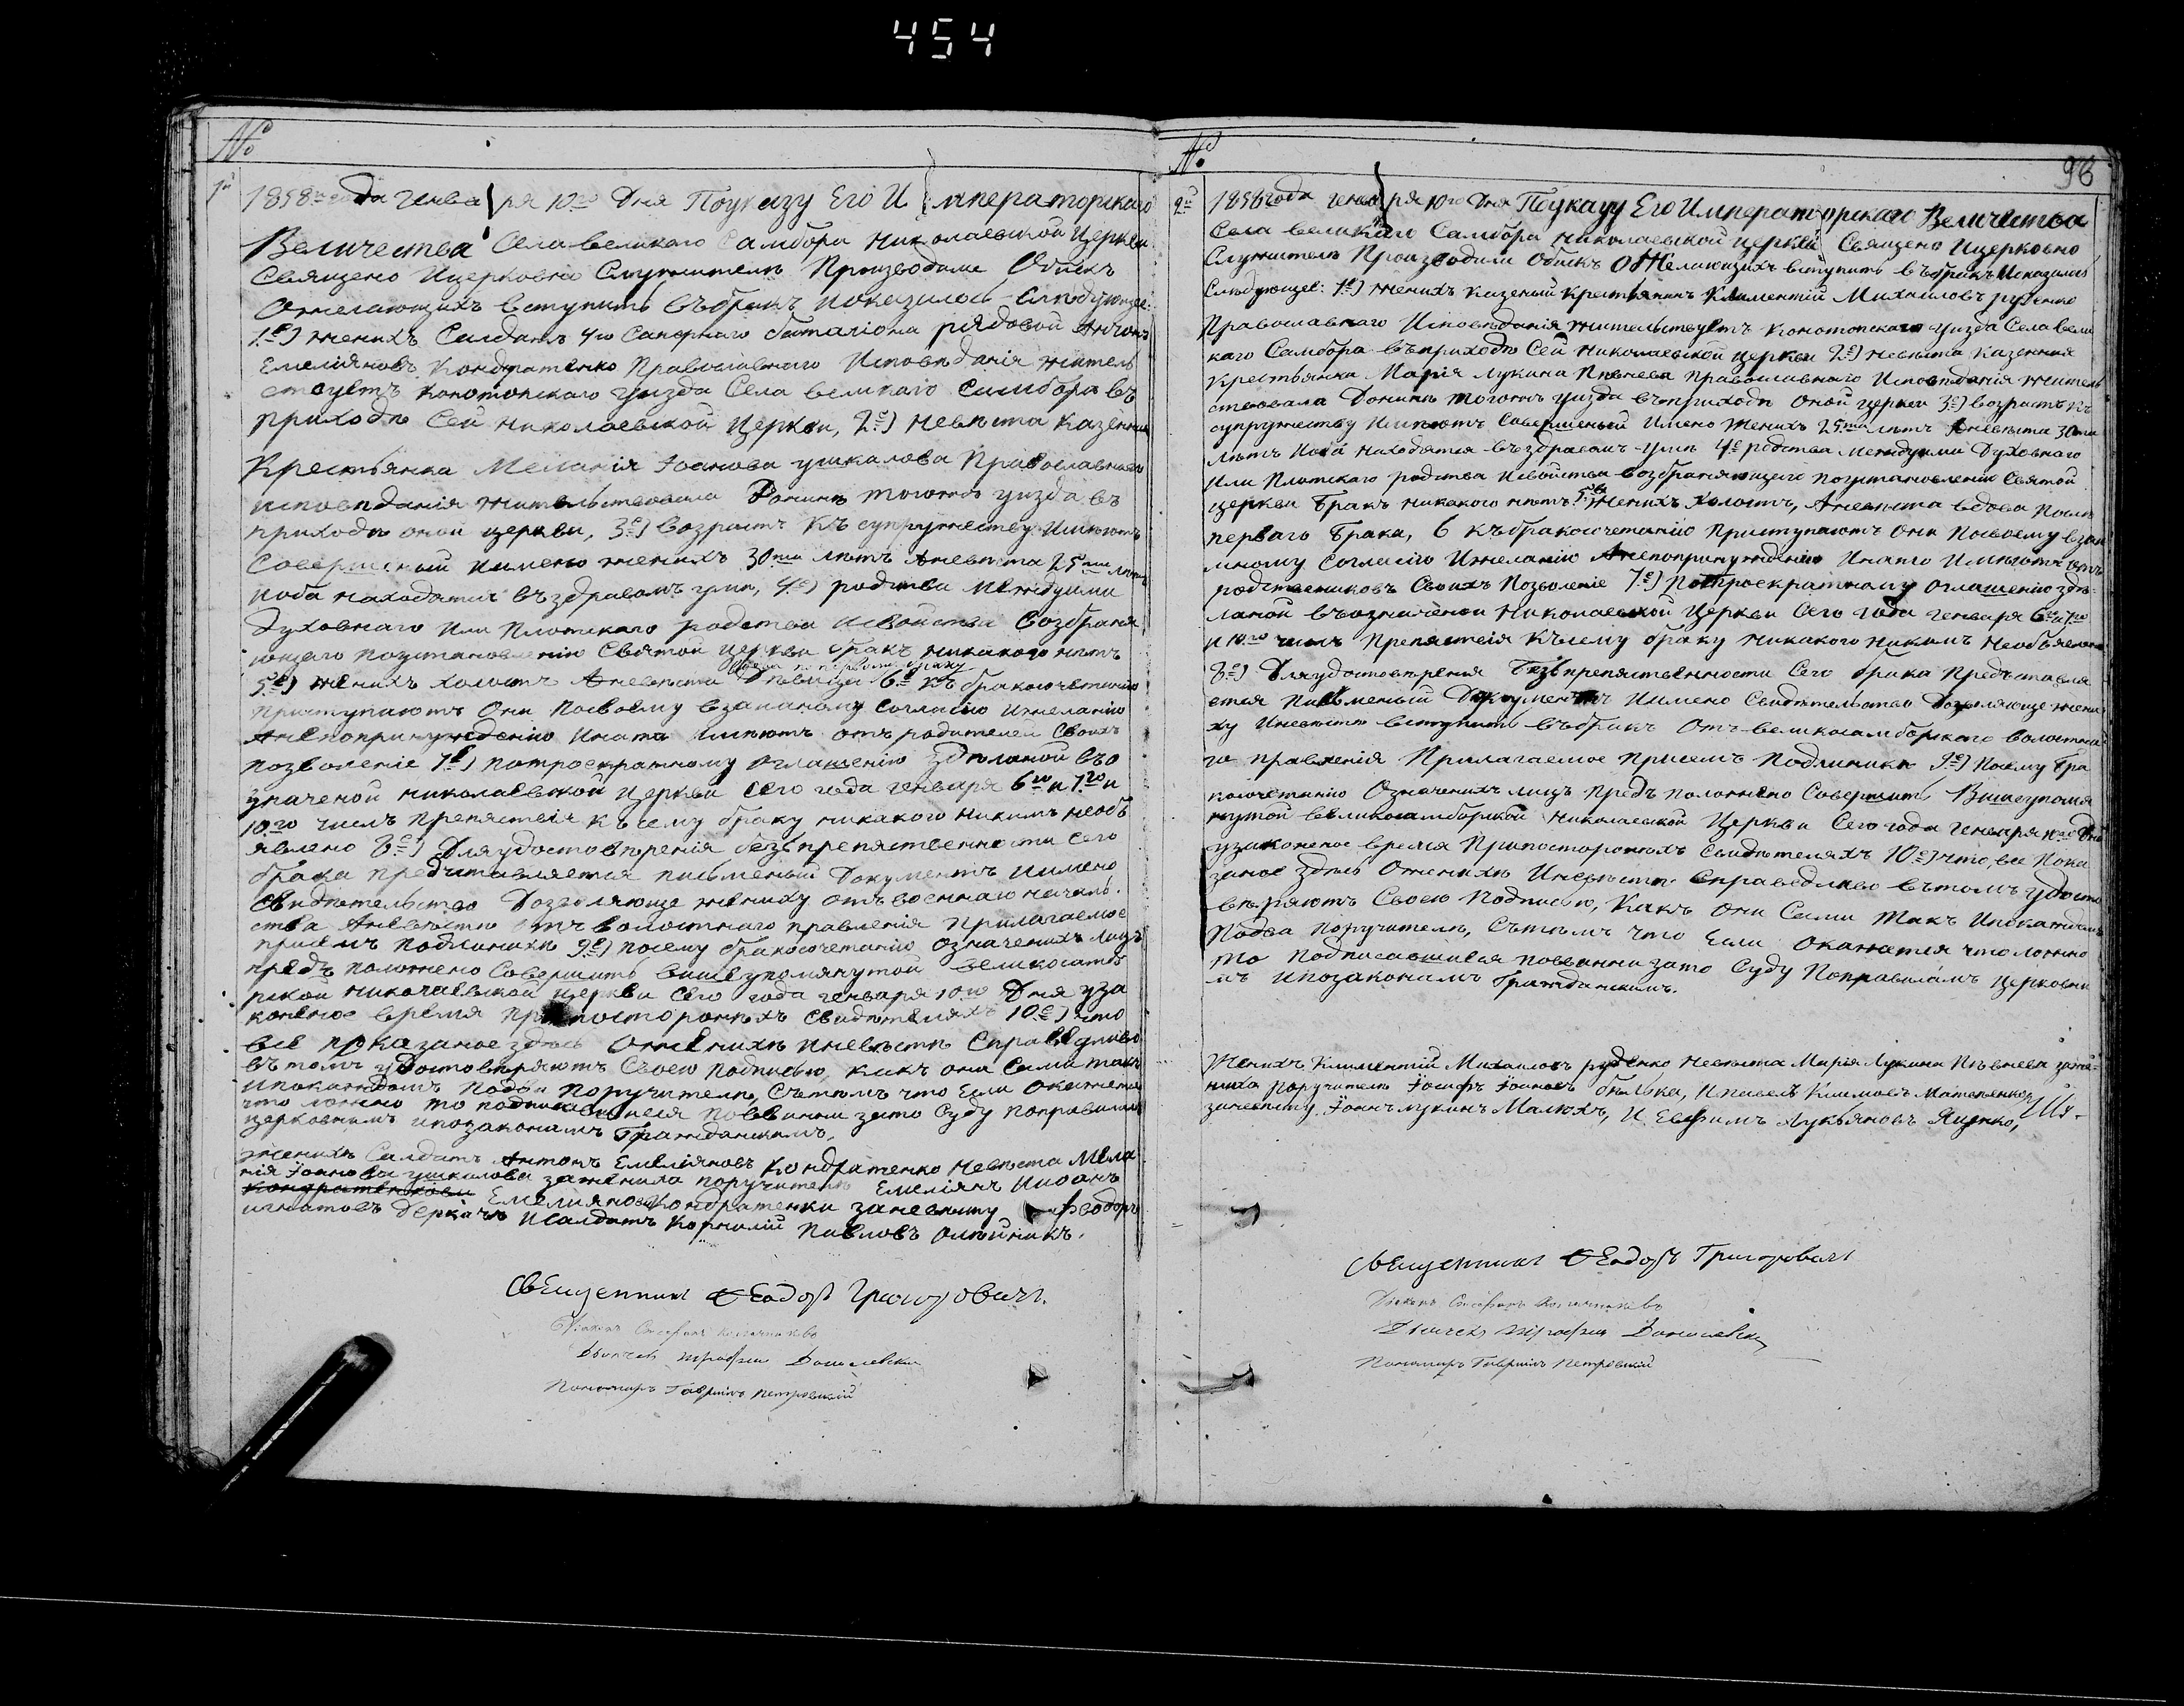 454
№
1й
1858го года генва ря 10го Дня Поуказу Его И мператорскаго
Величества Села великаго Самбора Николаевской Церкви
Священо Ицерковно Служители Производили Обыск
Ожелающихъ вступить въбракъ Иоказалось Следующее:
1е) женихъ Салдатъ 4го Сапернаго баталіона рядовой Антонъ
Емеліяновъ Кондратенко Православнаго Исповеданія житель
ствуетъ Конотопскаго уизда Села великаго Самбора въ
приходе Сей Николаевской Церкви, 2е) Невеста Казенная
Крестьянка Меланія Іоанова ушкалова Православнаго
исповеданія жительствовала Доныне тогожъ уизда въ
приходе оной церкви, 3е) возрастъ Къ супружеству Имеютъ
Совершеный Имено женихъ 30ти летъ Аневеста 25ти летъ
Иоба находятся въздравомъ уме, 4е) родства Междуими
Духовнаго Или Плотскаго родства Исвойства возбраня
ющаго поустановленію Святой церкви бракъ никакого нетъ
5е) женихъ холостъ Аневеста Девица 6е Къбракосочетанію
Приступаютъ Они Посвоему взаимному Согласію Ижеланію
Анепопринужденію Инато Имеютъ отъродителей Своихъ
позволеніе 7е) потроекратному Оглашенію зделаной въо
значеной николаевской церкви Сего года генваря 6го и 7го и
10го числъ препяствія Късему браку никакого никимъ необъ
явлено 8е) Дляудостоверенія безъпрепяственности Сего
брака предъставляется письменый Документъ Имено
Свидетельство Дозволяюще жениху отъвоеннаго началь
ства Аневесте отъ волостнаго правленія Прилагаемое
присемъ подлиники 9е) посему бракосочетанію Означеныхъ лицъ
предъ положено Совершить вышеупомянутой великосамбо
рской николаевской церкви Сего года генваря 10го Дня уза
коненое время Припостороннихъ свидетеляхъ 10е) что
все показаное здесь Ожених Иневесте Справедливо
въ томъ удостоверяютъ Своею подписью, какъ они Сами такъ
Ипокаждомъ Подва поручители, Сътемъ что Если Окажется
что ложно то подписавшіеся повинни зато Суду поправиламъ
церковнымъ ипозаконамъ Гражданскимъ.
женихъ Салдатъ Антонъ Емеліяновъ Кондратенко Невеста Мела
нія Іоанова ушкалова заженіха поручители Емеліянъ Ииоанъ
Кондратенкови Емелияновы Кондратенки заневесту Феодоръ
игнатовъ Деркачъ Исалдатъ Корнилій Павловъ Олейникъ.
Священникъ Феодоръ Григоровичъ.
Діаконъ Стефанъ
Дьячекъ Трофим
Пономаръ Гавриилъ Петровский
№
96
2й
1858 года генва ря 10го Дня Поуказу Его Императорскаго Величества
Села великаго Самбора николаевской церкви Священо Ицерковно
Служители Производили Обыскъ ОЖелающихъ вступить въбракъ Иоказалось
Следующее: 1е) женихъ Казеный Крестьянинъ Климентій Михаиловъ руденко
Православнаго Исповеданія жительствуетъ Конотопскаго уизда Села вели
каго Самбора въприходе Сей Николаевской церкви 2е) Невеста Казенная
Крестьянка Марія Лукина Певнева Православнаго Исповеданія житель
ствовала Доныне тогожъ уизда въприходе оной церкви 3е) возрастъ къ
супружеству Имеютъ Совершеный Имено женихъ 25ти летъ Аневеста 30ти
летъ Иоба находятся въздравомъ уме 4е родства Междуими Духовнаго
Или Плотскаго родства Исвойства возбраняющаго поустановленію Святой
церкви Бракъ никакого нетъ 5е Женихъ холостъ, Аневеста вдова После
перваго Брака, 6 Къбракосочетанію Приступаютъ Они Посвоему взаи
мному Согласію Ижеланію Анепопринужденію Инато Имеютъ отъ
родствениковъ Своихъ Позволеніе 7е) Потроекратному Оглашенію зде
ланой въозначеной Николаевской Церкви Сего года генваря 6го и 7го
и 10го числъ Препяствія Късему браку никакого никимъ Необъявлено
8е) Дляудостоверенія Безъпрепяственности Сего брака Предъставля
ется Письменый Документъ Имено Свидетельство Дозволяюще жени
ху Иневесте вступить въбракъ Отъвеликосамборскаго волостна
го правленія Прилагаемое присемъ Подлиники 9е) Посему Бра
косочетанію Означеныхъ лицъ предъ положено Совершить Вышеупомя
нутой великосамборской Николаевской Церкви Сего года генваря 10го Дня
узаконеное время Припостороннихъ Свидетеляхъ 10е) что все Пока
заное здесь Оженихе Иневесте Справедливо вътомъ удосто
веряютъ Своею Подписью, Какъ Они Сами Такъ Ипокаждомъ
Подва Поручители, Сътемъ что Если Окажется что ложно
то Подписавшіеся повинни зато Суду Поправиламъ Церковны
мъ ипозаконамъ Гражданскимъ.
Женихъ Климентій Михаиловъ руденко Невеста Марія Лукина Певнева заже
ниха Поручители Іосифъ Іоановъ белька, Ипавелъ Климовъ
заневесту Іоанъ лукинъ Малюхъ, И Ефимъ Лукьяновъ Яценко,
Священникъ Феодоръ Григоровичъ
Діаконъ Стефанъ
Дьячекъ Трофим
Пономаръ Гавриилъ Петровский